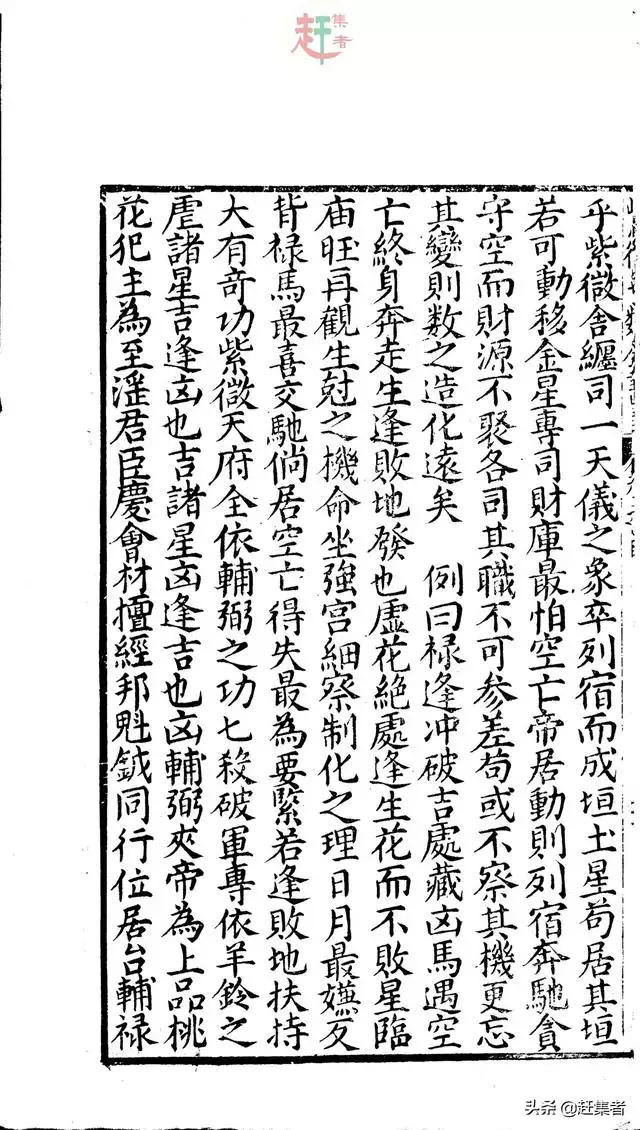 赶集者
乎紫微舍纏司一天儀之象卒列宿而成垣土星苟居其垣
若可動移金星專司財庫最怕空亡帝居動則列宿奔馳貪
守空而財源不聚各司其職不可参差苟或不察其機更忘
其變則数之造化遠矣　例曰禄逢冲破吉處藏凶馬遇空
亡終身奔走生逢敗地發也虛花絶處逢生花而不敗星臨
庙旺再觀生尅之機命坐強宫細察制化之理日月最嫌反
背禄馬最喜交馳倘居空亡得失最為要緊若逢敗地扶持
大有奇功紫微天府全依輔弼之功七殺破軍專依羊鈴之
虐諸星吉逢凶也吉諸星凶逢吉也凶輔弼夾帝為上品桃
花犯主為至滛君臣慶會材擅經邦魁鉞同行位居台輔禄
头条 @赶集者